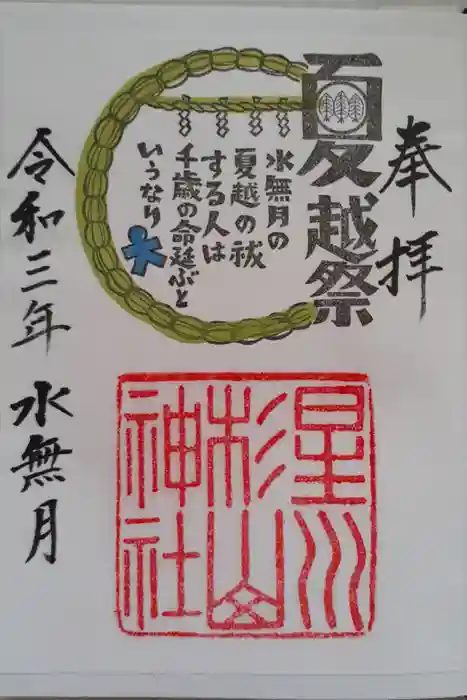 奉拝
夏越祭
水無月の
夏越の祓
する人は
千歳の命延ぶと
いうなり
令和三年 水無月
星川
杉山
神社